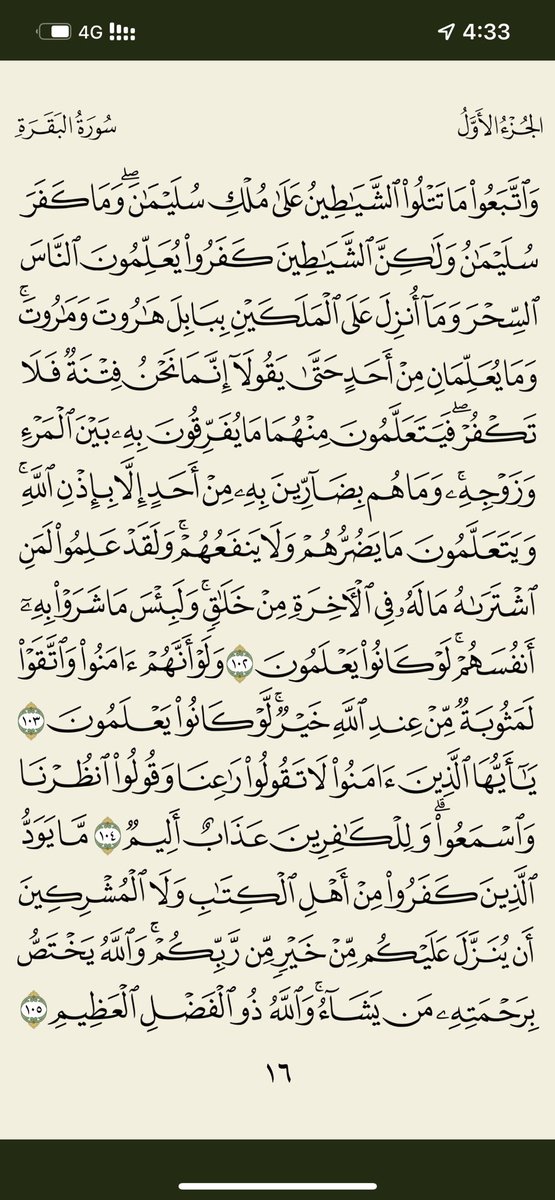 4G 4:33
الجُزْءُ الأَوَّلُ سُورَةُ البَقَرَةِ
وَٱتَّبَعُواْ مَا تَتْلُواْ ٱلشَّيَٰطِينُ عَلَىٰ مُلْكِ سُلَيْمَٰنَۖ وَمَا كَفَرَ
سُلَيْمَٰنُ وَلَٰكِنَّ ٱلشَّيَٰطِينَ كَفَرُواْ يُعَلِّمُونَ ٱلنَّاسَ
ٱلسِّحْرَ وَمَآ أُنزِلَ عَلَى ٱلْمَلَكَيْنِ بِبَابِلَ هَٰرُوتَ وَمَٰرُوتَۚ
وَمَا يُعَلِّمَانِ مِنْ أَحَدٍ حَتَّىٰ يَقُولَآ إِنَّمَا نَحْنُ فِتْنَةٌ فَلَا
تَكْفُرْۖ فَيَتَعَلَّمُونَ مِنْهُمَا مَا يُفَرِّقُونَ بِهِۦ بَيْنَ ٱلْمَرْءِ
وَزَوْجِهِۦۚ وَمَا هُم بِضَآرِّينَ بِهِۦ مِنْ أَحَدٍ إِلَّا بِإِذْنِ ٱللَّهِۚ
وَيَتَعَلَّمُونَ مَا يَضُرُّهُمْ وَلَا يَنفَعُهُمْۚ وَلَقَدْ عَلِمُواْ لَمَنِ
ٱشْتَرَىٰهُ مَا لَهُۥ فِى ٱلْءَاخِرَةِ مِنْ خَلَٰقٍۚ وَلَبِئْسَ مَا شَرَوْاْ بِهِۦٓ
أَنفُسَهُمْۚ لَوْ كَانُواْ يَعْلَمُونَ ١٠٢ وَلَوْ أَنَّهُمْ ءَامَنُواْ وَٱتَّقَوْاْ
لَمَثُوبَةٌ مِّنْ عِندِ ٱللَّهِ خَيْرٌۚ لَّوْ كَانُواْ يَعْلَمُونَ ١٠٣
يَٰٓأَيُّهَا ٱلَّذِينَ ءَامَنُواْ لَا تَقُولُواْ رَٰعِنَا وَقُولُواْ ٱنظُرْنَا
وَٱسْمَعُواْۗ وَلِلْكَٰفِرِينَ عَذَابٌ أَلِيمٌ ١٠٤ مَّا يَوَدُّ
ٱلَّذِينَ كَفَرُواْ مِنْ أَهْلِ ٱلْكِتَٰبِ وَلَا ٱلْمُشْرِكِينَ
أَن يُنَزَّلَ عَلَيْكُم مِّنْ خَيْرٍ مِّن رَّبِّكُمْۚ وَٱللَّهُ يَخْتَصُّ
بِرَحْمَتِهِۦ مَن يَشَآءُۚ وَٱللَّهُ ذُو ٱلْفَضْلِ ٱلْعَظِيمِ ١٠٥
١٦